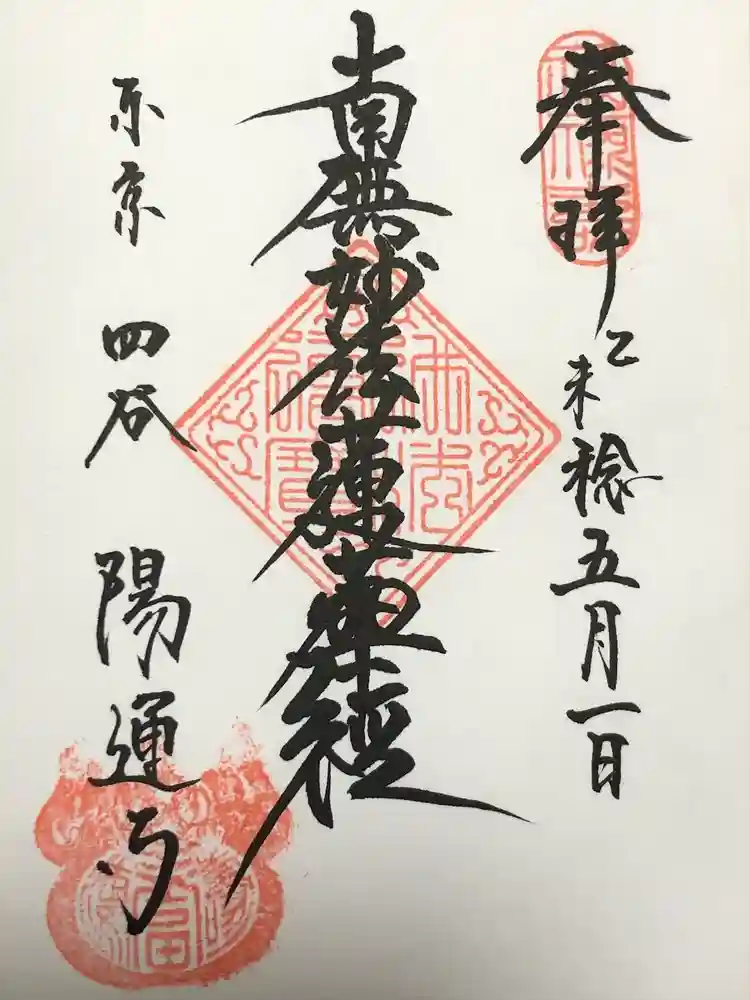 奉拝
乙未稔五月一日
南無妙法蓮華経
东京
四谷
陽運寺